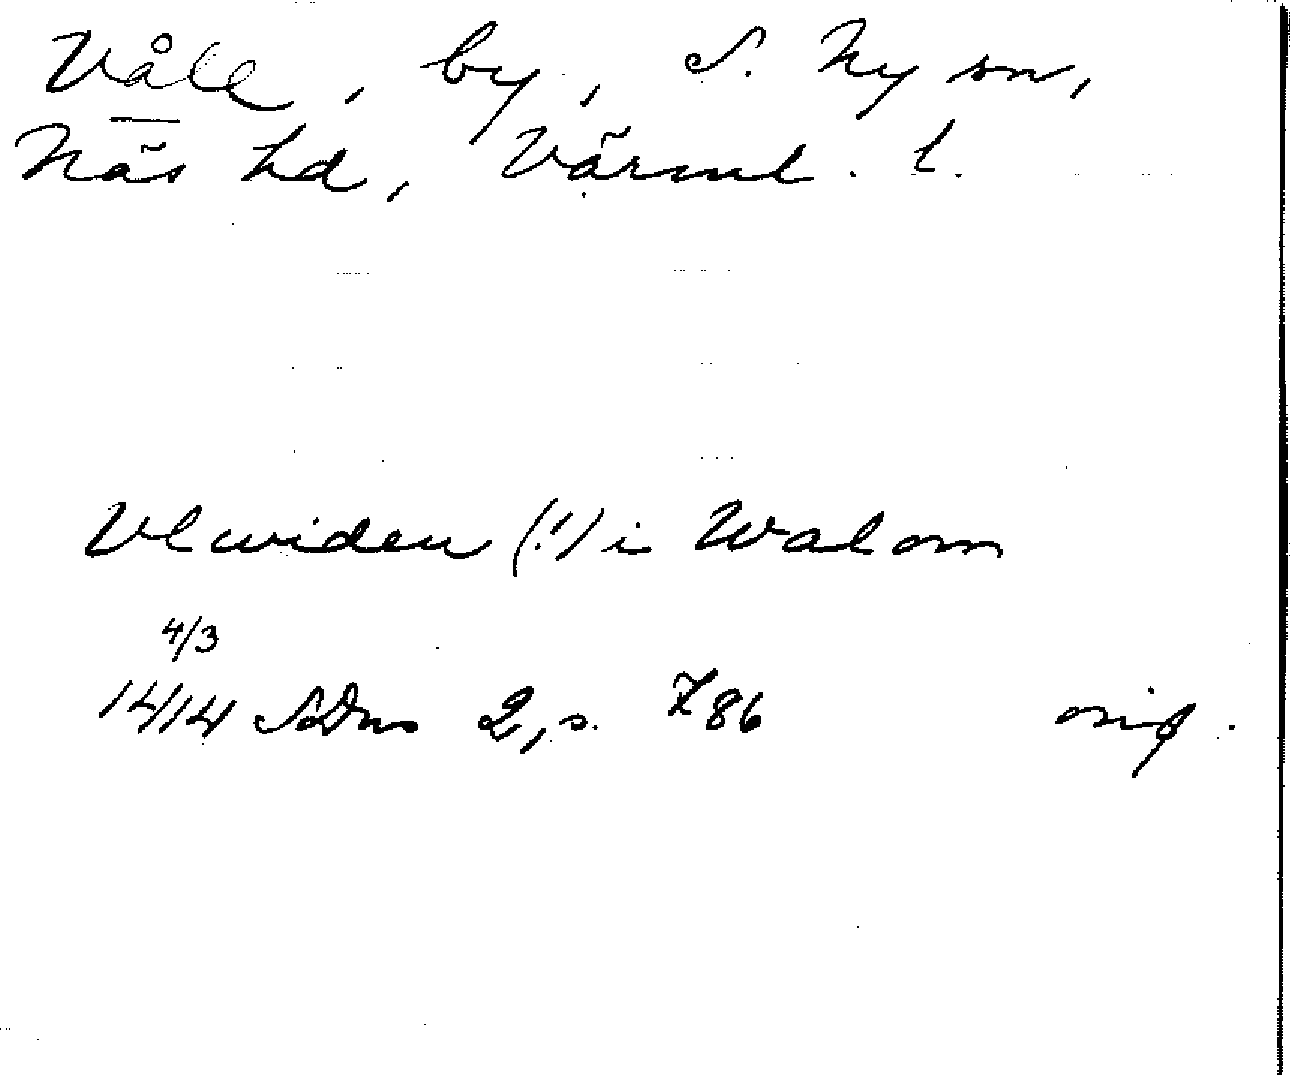 Våle, by, S. Ny sn,
Näs hd, Värml. l.
Vlwiden (!) i Walom
4/3
1414 SDns 2, s. 786 orig.